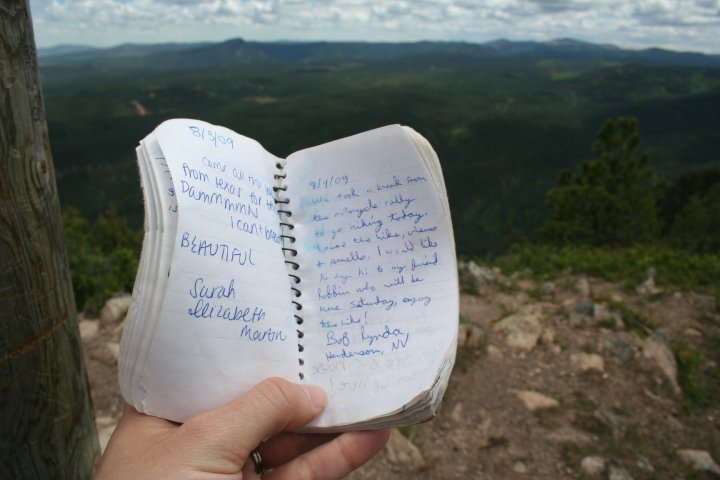 8/3/09
come all the
from texas for
DammmmN
i can't
BEAUTIFUL
Sarah
Elizabeth
Martin
8/4/09
We took a break from
the motorcycle rally
to go hiking today.
loved the hike, views
& smells. I would like
to say hi to my friend
Robbin who will be
here Saturday, enjoy
the hike!
Bob & Lynda
Henderson, NV